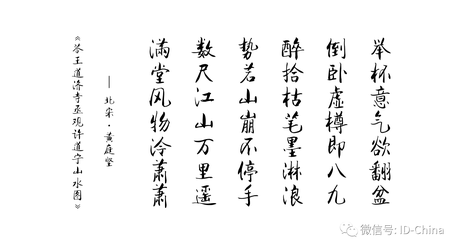 举杯意气欲翻盆
倒卧虚樽即八九
醉拾枯笔墨淋浪
势若山崩不停手
数尺江山万里遥
满堂风物冷萧萧
——北宋·黄庭坚
《答王道济寺丞观许道宁山水图》
微信号: ID-China